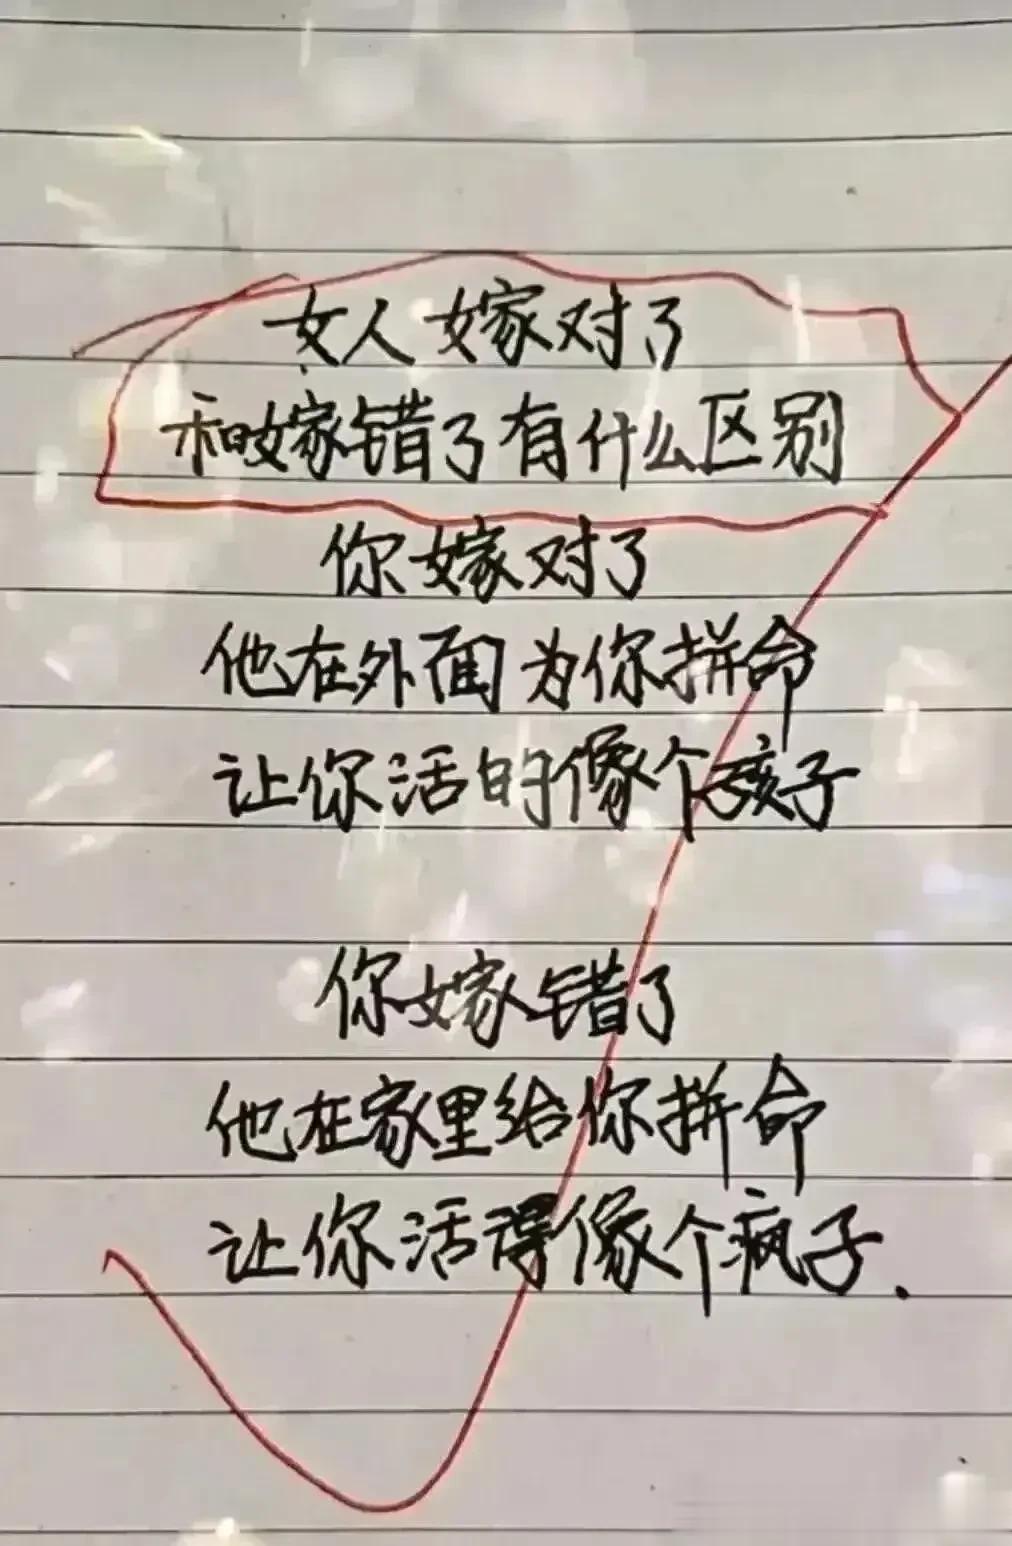 女人嫁对了
和嫁错了有什么区别
你嫁对了
他在外面为你拼命
让你活的像个孩子
你嫁错了
他在家里给你拼命
让你活得像个疯子.